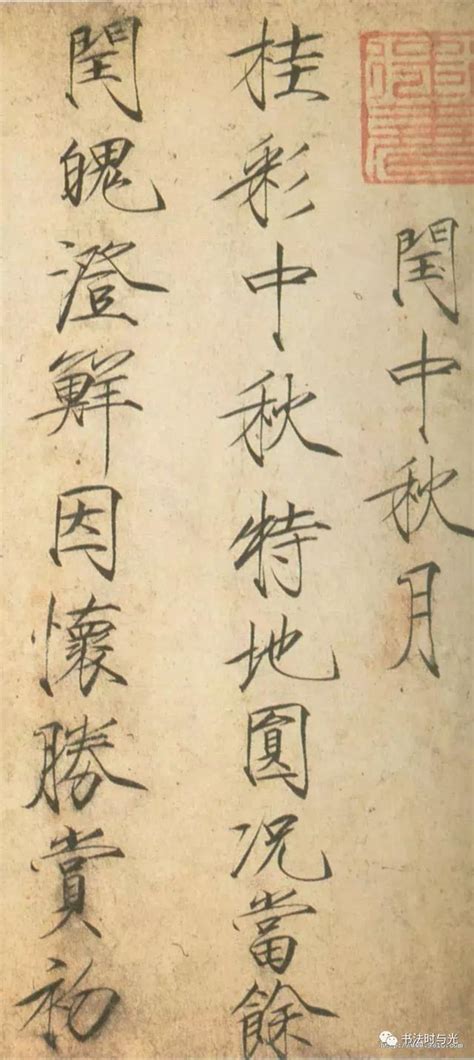 閏中秋月
桂彩中秋特地圓况當餘
閏魄澄鮮因懷勝賞初
书法时与光